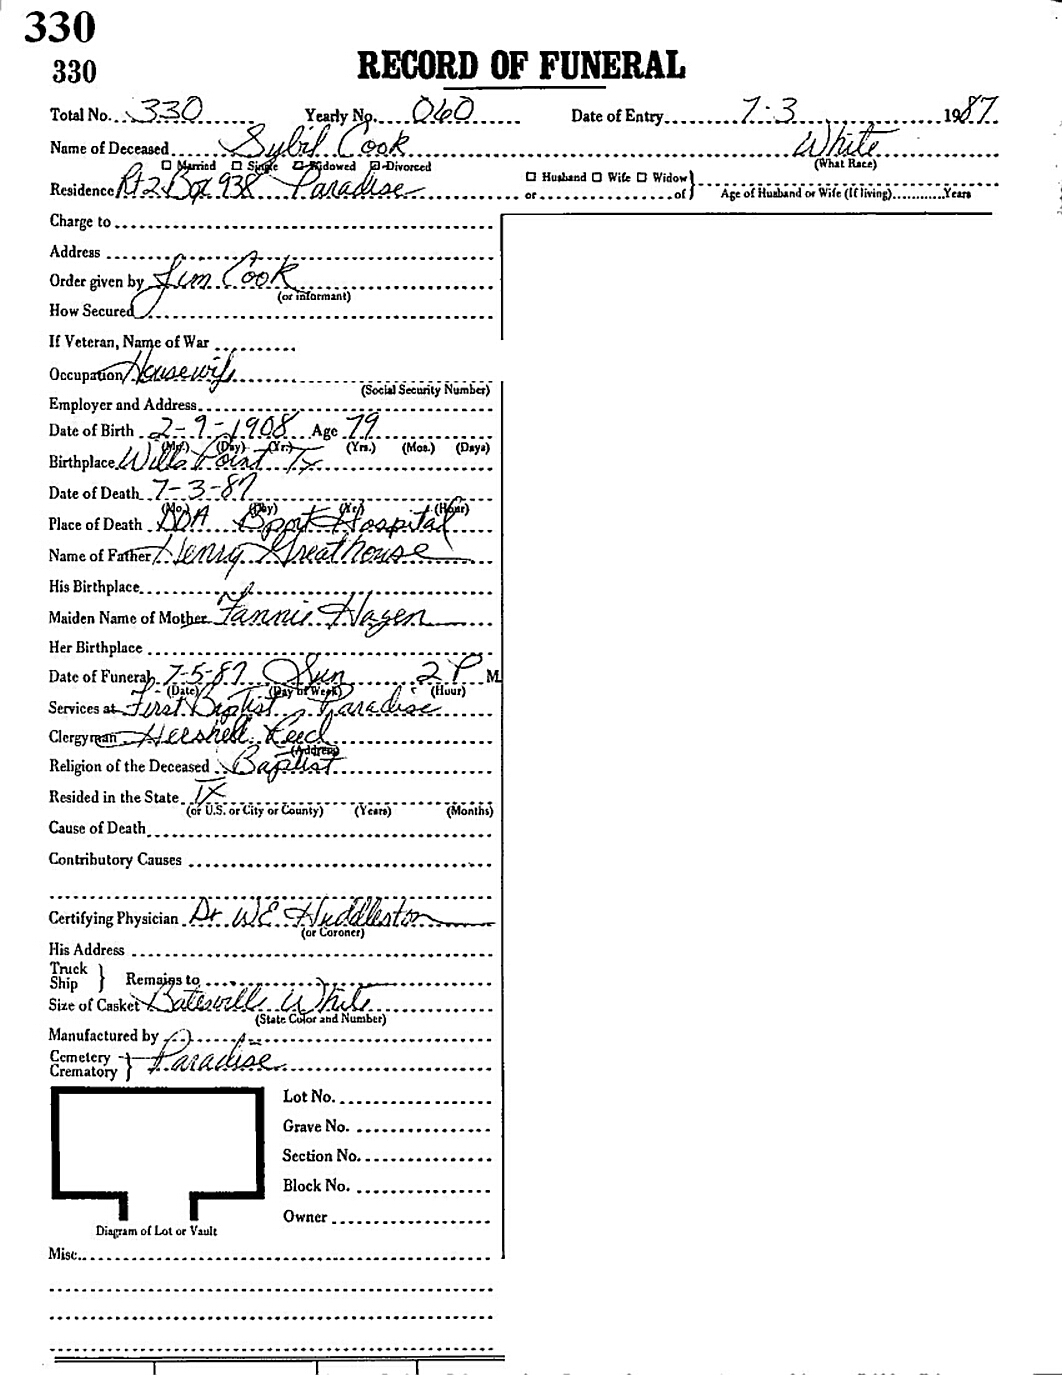 330
330
RECORD OF FUNERAL
Total No. 330 Yearly No. 060 Date of Entry 7-3 1987
Name of Deceased Sybil Cook White
☐ Married ☐ Single ☐ Widowed ☑ Divorced (What Race)
Residence Rt 2 Box 938 Paradise ☐ Husband ☐ Wife ☐ Widow
or of } Age of Husband or Wife (If living) Years
Charge to
Address
Order given by Jim Cook
(or informant)
How Secured
If Veteran, Name of War
Occupation Housewife
(Social Security Number)
Employer and Address
Date of Birth 2-9-1908 Age 79
(Mo.) (Day) (Yr.) (Yrs.) (Mos.) (Days)
Birthplace Wills Point Tx
Date of Death 7-3-87
(Mo.) (Day) (Yr.) (Hour)
Place of Death DOA Bport Hospital
Name of Father Henry Greathouse
His Birthplace
Maiden Name of Mother Fannie Hagen
Her Birthplace
Date of Funeral 7-5-87 Sun 2 P M.
(Date) (Day of Week) (Hour)
Services at First Baptist Paradise
Clergyman Hershell Reed
(Address)
Religion of the Deceased Baptist
Resided in the State TX
(or U.S. or City or County) (Years) (Months)
Cause of Death
Contributory Causes
Certifying Physician Dr WE Huddleston
(or Coroner)
His Address
Truck
Ship } Remains to
Size of Casket Batesville White
(State Color and Number)
Manufactured by
Cemetery
Crematory } Paradise
Lot No.
Grave No.
Section No.
Block No.
Owner
Diagram of Lot or Vault
Misc.